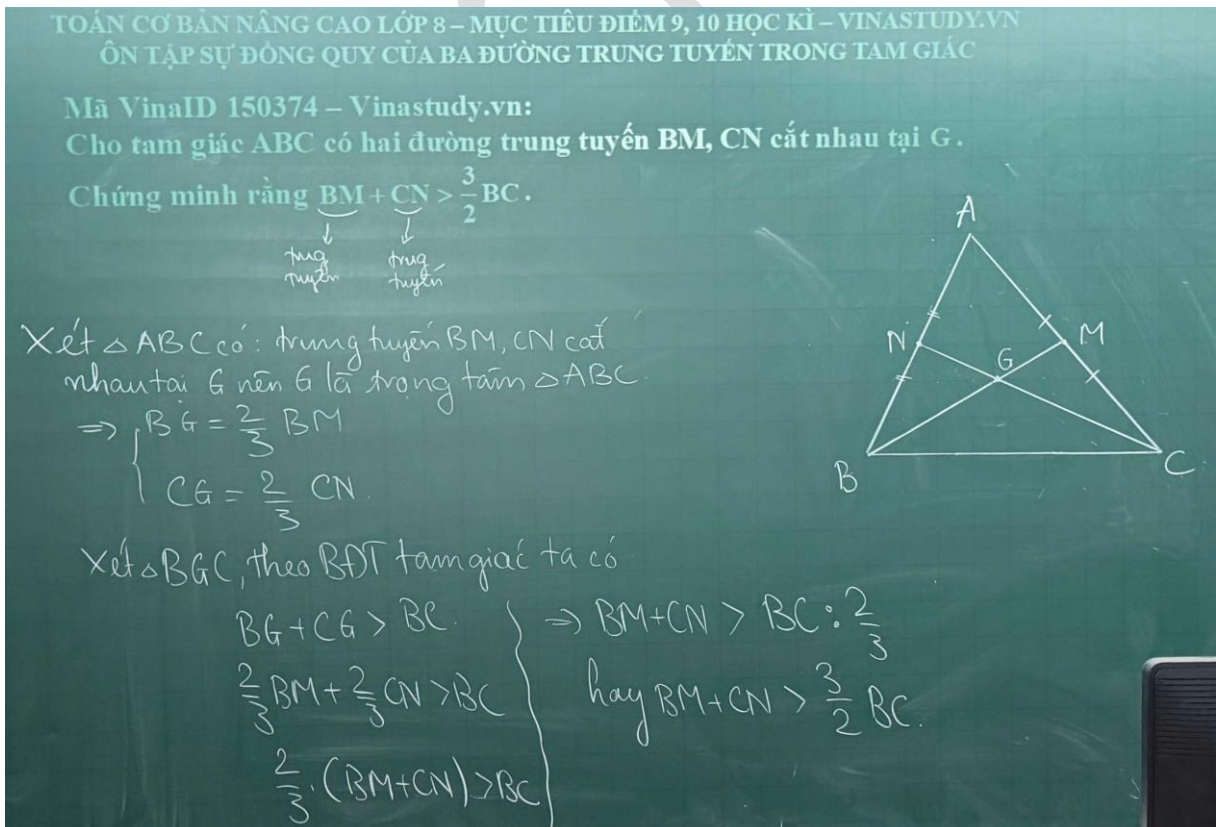 TOÁN CƠ BẢN NÂNG CAO LỚP 8 – MỤC TIÊU ĐIỂM 9, 10 HỌC KÌ – VINASTUDY.VN
ÔN TẬP SỰ ĐỒNG QUY CỦA BA ĐƯỜNG TRUNG TUYẾN TRONG TAM GIÁC
Mã VinaID 150374 – Vinastudy.vn:
Cho tam giác ABC có hai đường trung tuyến BM, CN cắt nhau tại G.
Chứng minh rằng BM + CN > 3/2 BC.
trug trug
tuyến tuyến
Xét △ABC có: trung tuyến BM, CN cắt
nhau tại G nên G là trọng tâm △ABC.
⇒ { BG = 2/3 BM
CG = 2/3 CN.
Xét △BGC, theo BĐT tam giác ta có
BG + CG > BC.
2/3 BM + 2/3 CN > BC
2/3 . (BM + CN) > BC
⇒ BM + CN > BC : 2/3
hay BM + CN > 3/2 BC.
A
N
M
G
B
C